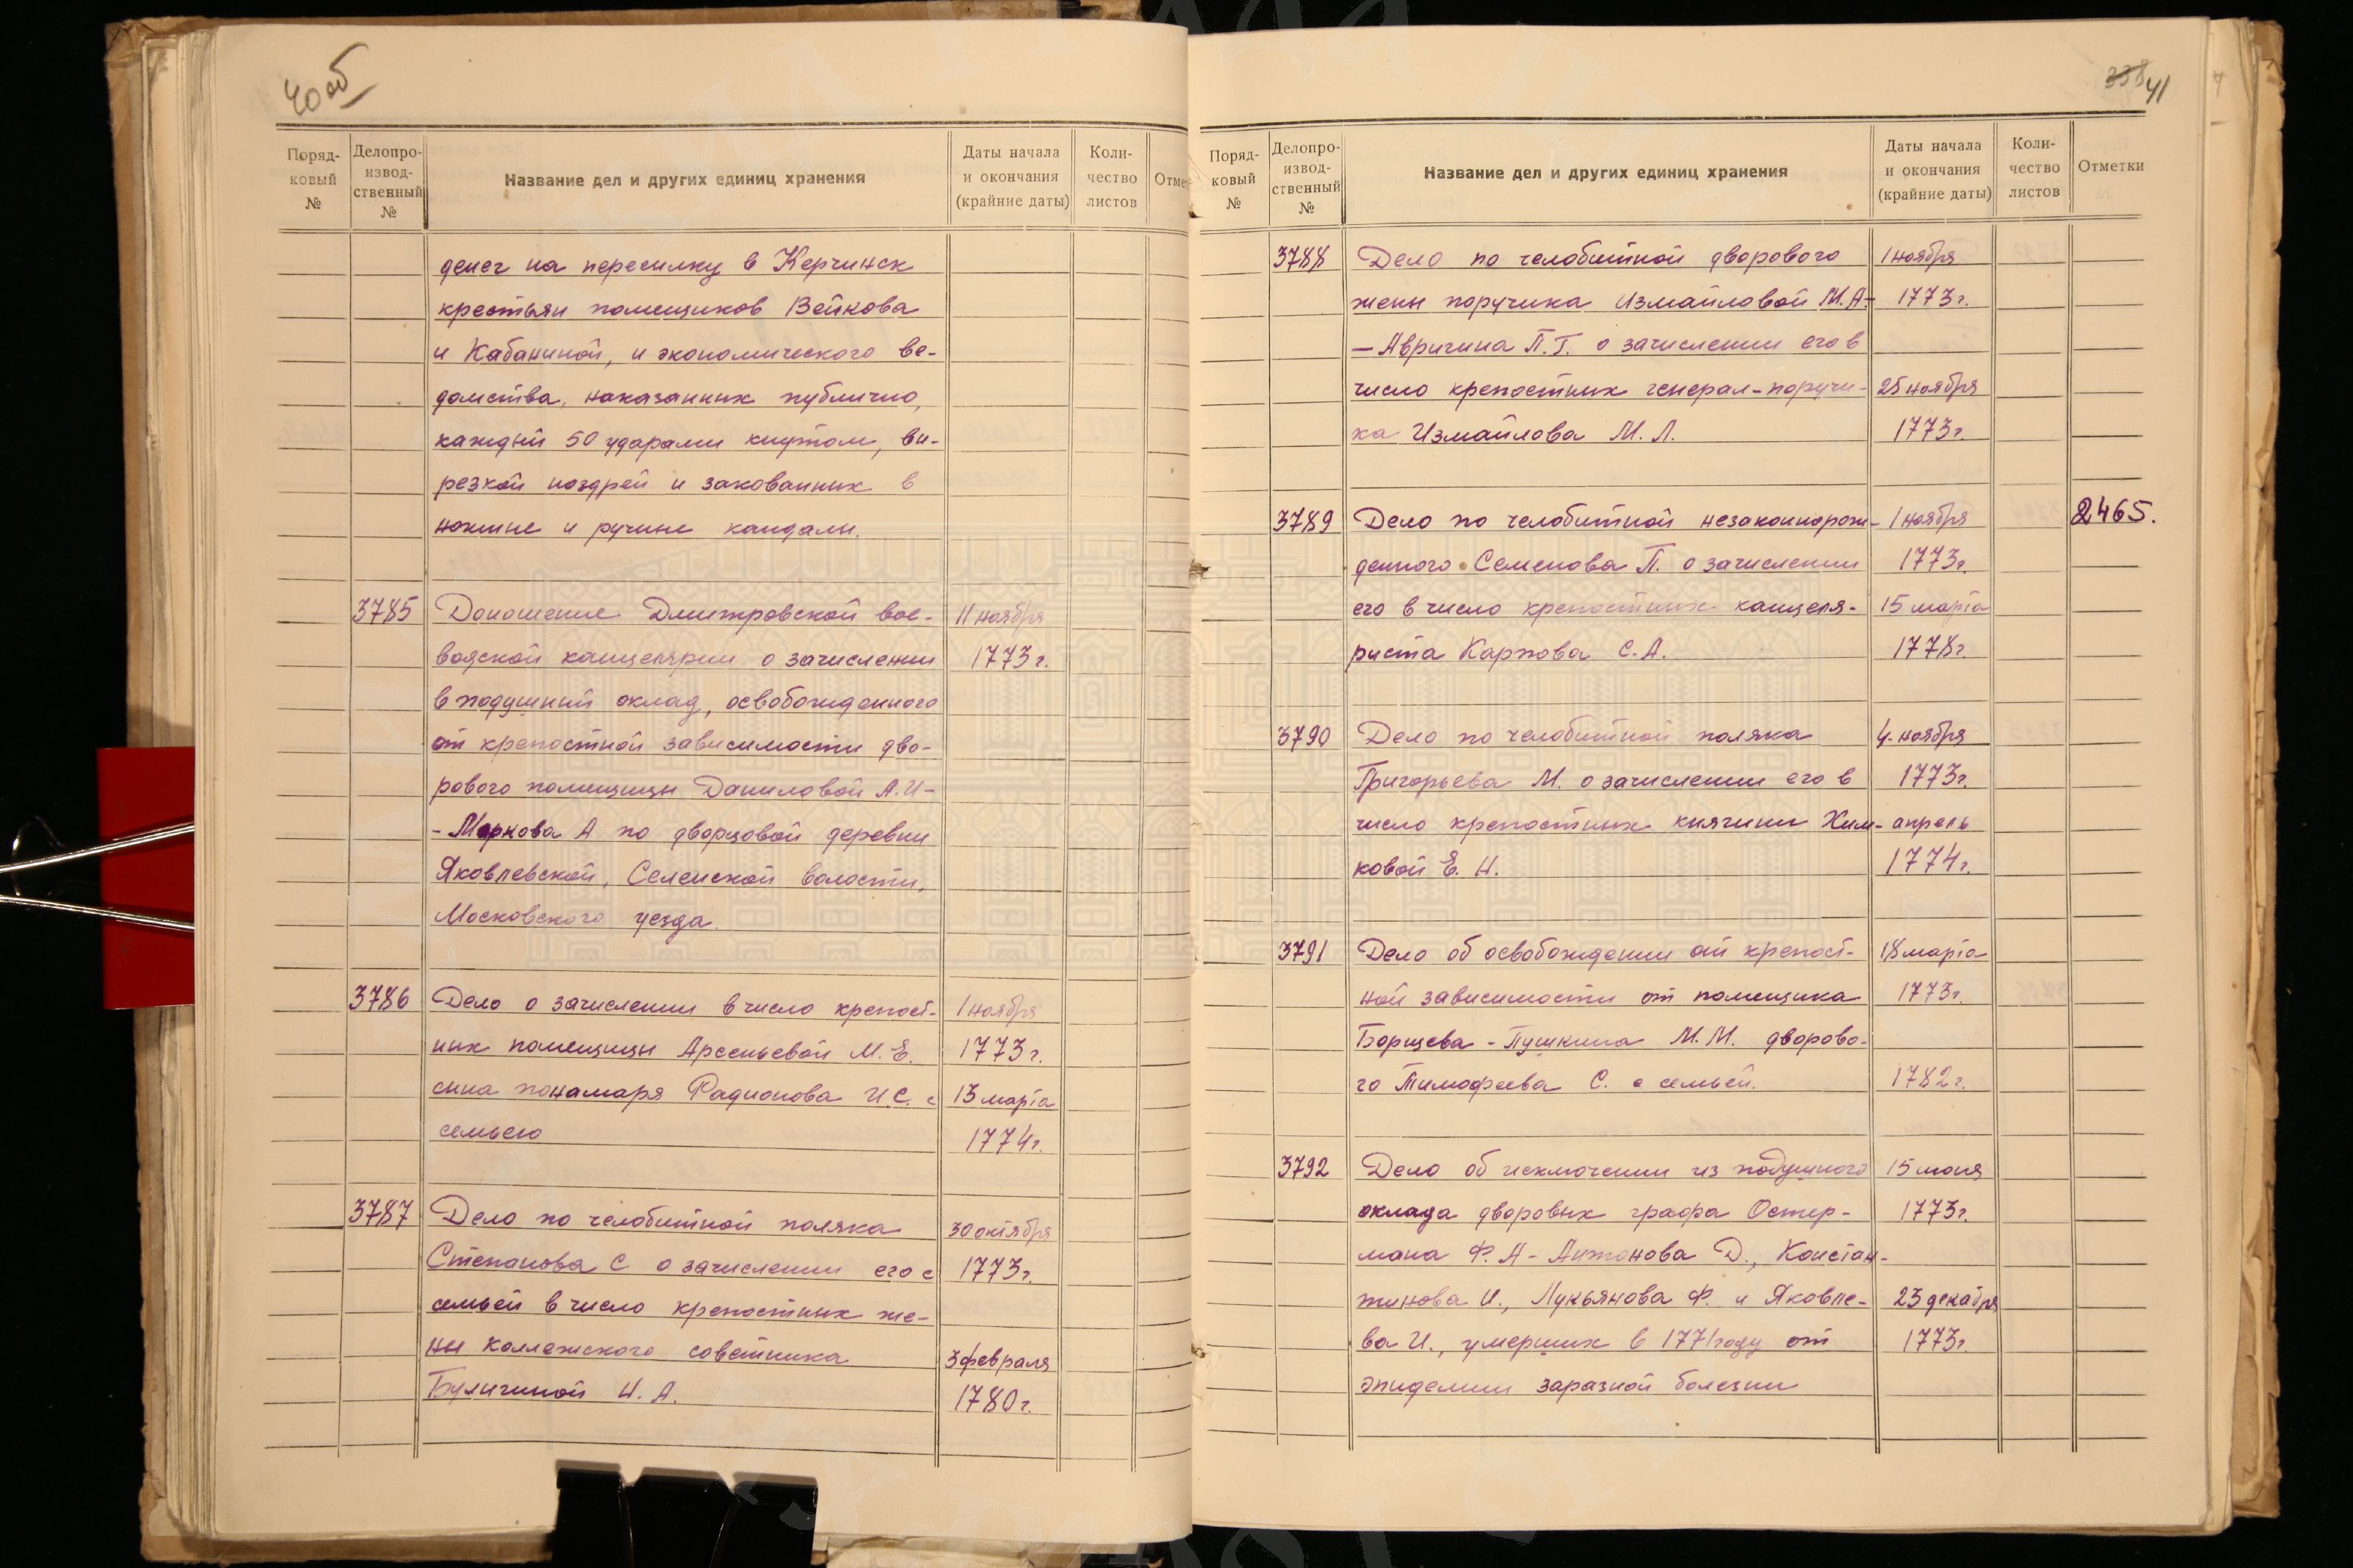 40об
Поряд-
ковый
№
Делопро-
извод-
ственный
№
Название дел и других единиц хранения
Даты начала
и окончания
(крайние даты)
Коли-
чество
листов
Отме
денег на пересылку в Керчинск
крестьян помещиков Вейкова
и Кабаниной, и экономического ве-
домства, наказанных публично,
каждый 50 ударами кнутом, вы-
резкой ноздрей и закованных в
ножные и ручные кандалы.
3785 Доношение Дмитровской вое- 11 ноября
водской канцелярии о зачислении 1773 г.
в подушный оклад, освобожденного
от крепостной зависимости дво-
рового помещицы Даниловой А.И-
- Маркова А по дворцовой деревни
Яковлевской, Селенской волости,
Московского уезда.
3786 Дело о зачислении в число крепост- 1 ноября
ных помещицы Арсеньевой М. Е. 1773 г.
сына пономаря Радионова И.С. с 13 марта
семьею 1774г.
3787 Дело по челобитной поляка 30 октября
Степанова С о зачислении его с 1773г.
семьей в число крепостных же-
ны коллежского советника 3 февраля
Булыгиной Н. А. 1780г.
338 41
Поряд-
ковый
№
Делопро-
извод-
ственный
№
Название дел и других единиц хранения
Даты начала
и окончания
(крайние даты)
Коли-
чество
листов
Отметки
3788 Дело по челобитной дворового 1 ноября
жены поручика Измайловой М.А- 1773г.
— Авригина П.Г. о зачислении его в
число крепостных генерал-поручи- 25 ноября
ка Измайлова М. Л. 1773г.
3789 Дело по челобитной незаконнорож- 1 ноября 2465.
денного Семенова П. о зачислении 1773г.
его в число крепостных канцеля- 15 марта
риста Карпова С.А. 1778г.
3790 Дело по челобитной поляка 4 ноября
Григорьева М. о зачислении его в 1773г.
число крепостных княгини Хим- апрель
ковой Е. Н. 1774г.
3791 Дело об освобождении от крепост- 18 марта
ной зависимости от помещика 1773г.
Борщева - Пушкина М.М. дворово-
го Тимофеева С. с семьей. 1782г.
3792 Дело об исключении из подушного 15 июня
оклада дворовых графа Остер- 1773г.
мана Ф. А - Антонова Д., Констан-
тинова И., Лукьянова Ф. и Яковле- 23 декабря
ва И., умерших в 1771 году от 1773г.
эпидемии заразной болезни